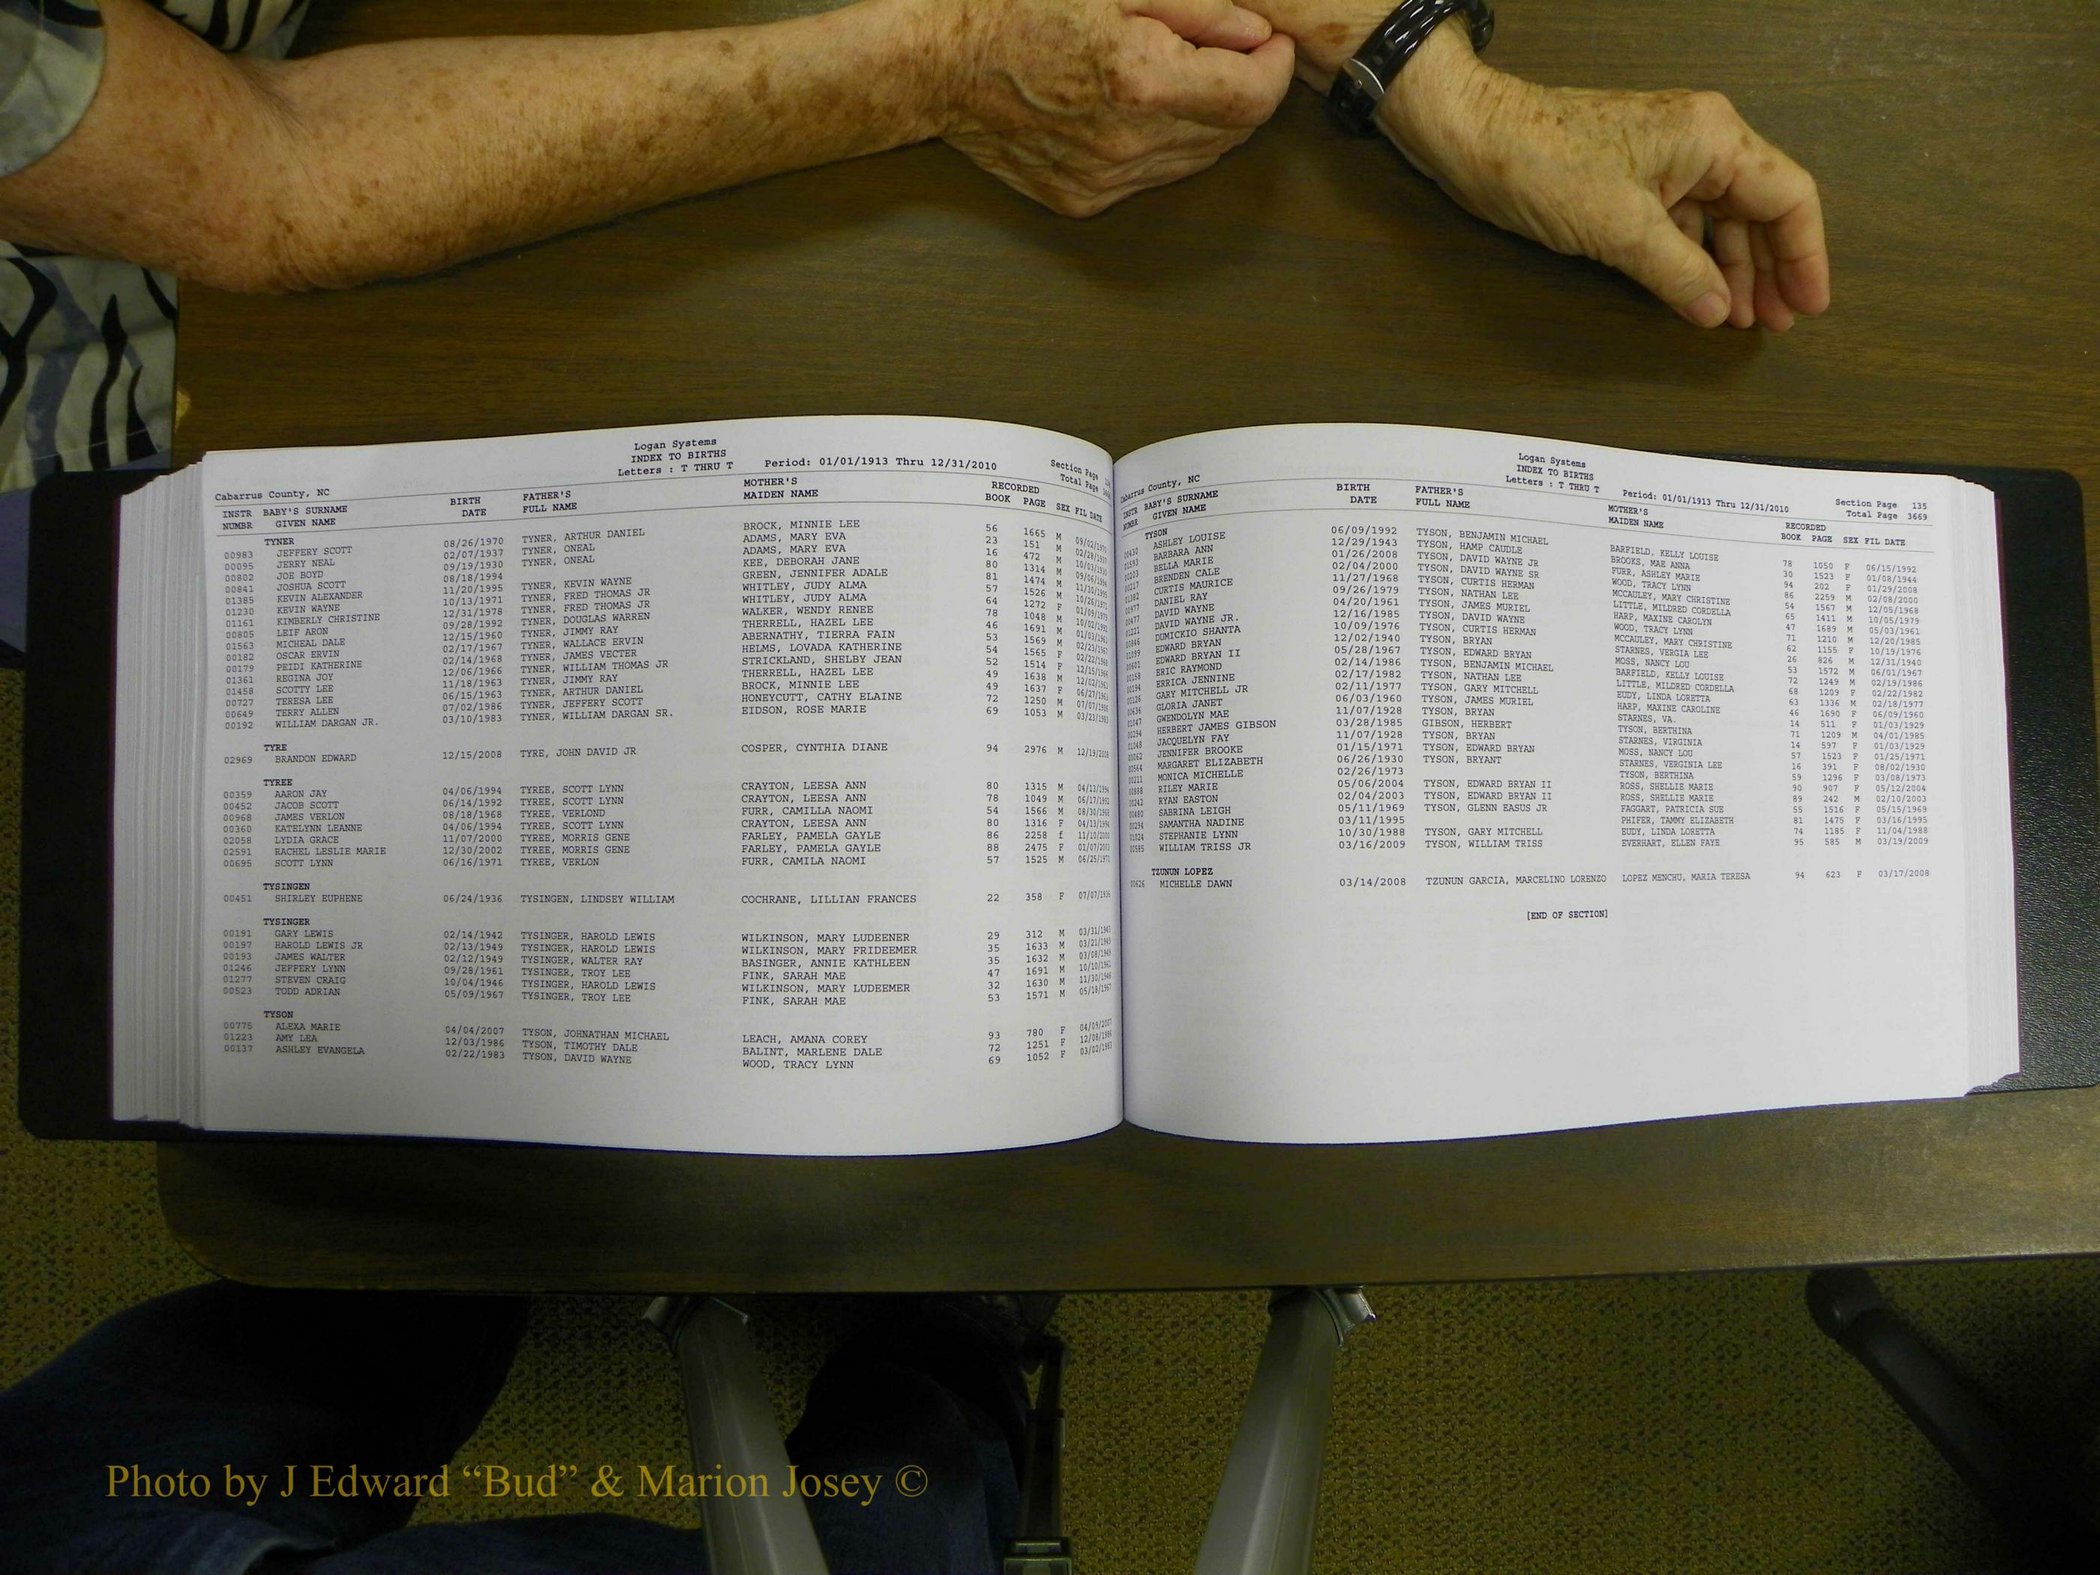 Logan Systems
INDEX TO BIRTHS
Letters : T THRU T Period: 01/01/1913 Thru 12/31/2010 Section Page
Cabarrus County, NC Total Page
INSTR BABY'S SURNAME BIRTH FATHER'S MOTHER'S RECORDED
NUMBR GIVEN NAME DATE FULL NAME MAIDEN NAME BOOK PAGE SEX FIL DATE
TYNER
00983 JEFFERY SCOTT 08/26/1970 TYNER, ARTHUR DANIEL BROCK, MINNIE LEE 56 1665 M 09/02/1970
00095 JERRY NEAL 02/07/1937 TYNER, ONEAL ADAMS, MARY EVA 23 151 M 02/28/1937
00802 JOE BOYD 09/19/1930 TYNER, ONEAL ADAMS, MARY EVA 16 472 M 10/03/1930
00841 JOSHUA SCOTT 08/18/1994 KEE, DEBORAH JANE 80 1314 M 09/06/1994
01385 KEVIN ALEXANDER 11/20/1995 TYNER, KEVIN WAYNE GREEN, JENNIFER ADALE 81 1474 M 11/30/1995
01230 KEVIN WAYNE 10/13/1971 TYNER, FRED THOMAS JR WHITLEY, JUDY ALMA 57 1526 M 10/26/1971
01161 KIMBERLY CHRISTINE 12/31/1978 TYNER, FRED THOMAS JR WHITLEY, JUDY ALMA 64 1272 F 01/09/1979
00805 LEIF ARON 09/28/1992 TYNER, DOUGLAS WARREN WALKER, WENDY RENEE 78 1048 M 10/02/1992
01563 MICHEAL DALE 12/15/1960 TYNER, JIMMY RAY THERRELL, HAZEL LEE 46 1691 M 01/03/1961
00182 OSCAR ERVIN 02/17/1967 TYNER, WALLACE ERVIN ABERNATHY, TIERRA FAIN 53 1569 M 02/23/1967
00179 PEIDI KATHERINE 02/14/1968 TYNER, JAMES VECTER HELMS, LOVADA KATHERINE 54 1565 F 02/22/1968
01361 REGINA JOY 12/06/1966 TYNER, WILLIAM THOMAS JR STRICKLAND, SHELBY JEAN 52 1514 F 12/15/1966
01458 SCOTTY LEE 11/18/1963 TYNER, JIMMY RAY THERRELL, HAZEL LEE 49 1638 M 12/02/1963
00727 TERESA LEE 06/15/1963 TYNER, ARTHUR DANIEL BROCK, MINNIE LEE 49 1637 F 06/27/1963
00649 TERRY ALLEN 07/02/1986 TYNER, JEFFERY SCOTT HONEYCUTT, CATHY ELAINE 72 1250 M 07/07/1986
00192 WILLIAM DARGAN JR. 03/10/1983 TYNER, WILLIAM DARGAN SR. EIDSON, ROSE MARIE 69 1053 M 03/23/1983
TYRE
02969 BRANDON EDWARD 12/15/2008 TYRE, JOHN DAVID JR COSPER, CYNTHIA DIANE 94 2976 M 12/19/2008
TYREE
00359 AARON JAY 04/06/1994 TYREE, SCOTT LYNN CRAYTON, LEESA ANN 80 1315 M 04/13/1994
00452 JACOB SCOTT 06/14/1992 TYREE, SCOTT LYNN CRAYTON, LEESA ANN 78 1049 M 06/17/1992
00968 JAMES VERLON 08/18/1968 TYREE, VERLOND FURR, CAMILLA NAOMI 54 1566 M 08/30/1968
00360 KATELYNN LEANNE 04/06/1994 TYREE, SCOTT LYNN CRAYTON, LEESA ANN 80 1316 F 04/13/1994
02058 LYDIA GRACE 11/07/2000 TYREE, MORRIS GENE FARLEY, PAMELA GAYLE 86 2258 f 11/10/2000
02591 RACHEL LESLIE MARIE 12/30/2002 TYREE, MORRIS GENE FARLEY, PAMELA GAYLE 88 2475 F 01/07/2003
00695 SCOTT LYNN 06/16/1971 TYREE, VERLON FURR, CAMILA NAOMI 57 1525 M 06/25/1971
TYSINGEN
00451 SHIRLEY EUPHENE 06/24/1936 TYSINGEN, LINDSEY WILLIAM COCHRANE, LILLIAN FRANCES 22 358 F 07/07/1936
TYSINGER
00191 GARY LEWIS 02/14/1942 TYSINGER, HAROLD LEWIS WILKINSON, MARY LUDEENER 29 312 M 03/31/1943
00197 HAROLD LEWIS JR 02/13/1949 TYSINGER, HAROLD LEWIS WILKINSON, MARY FRIDEEMER 35 1633 M 03/21/1949
00193 JAMES WALTER 02/12/1949 TYSINGER, WALTER RAY BASINGER, ANNIE KATHLEEN 35 1632 M 03/08/1949
01246 JEFFERY LYNN 09/28/1961 TYSINGER, TROY LEE FINK, SARAH MAE 47 1691 M 10/10/1961
01277 STEVEN CRAIG 10/04/1946 TYSINGER, HAROLD LEWIS WILKINSON, MARY LUDEEMER 32 1630 M 11/30/1946
00523 TODD ADRIAN 05/09/1967 TYSINGER, TROY LEE FINK, SARAH MAE 53 1571 M 05/18/1967
TYSON
00775 ALEXA MARIE 04/04/2007 TYSON, JOHNATHAN MICHAEL LEACH, AMANA COREY 93 780 F 04/09/2007
01223 AMY LEA 12/03/1986 TYSON, TIMOTHY DALE BALINT, MARLENE DALE 72 1251 F 12/08/1986
00137 ASHLEY EVANGELA 02/22/1983 TYSON, DAVID WAYNE WOOD, TRACY LYNN 69 1052 F 03/02/1983
Logan Systems
INDEX TO BIRTHS
Letters : T THRU T Period: 01/01/1913 Thru 12/31/2010 Section Page 135
Cabarrus County, NC Total Page 3669
INSTR BABY'S SURNAME BIRTH FATHER'S MOTHER'S RECORDED
NUMBR GIVEN NAME DATE FULL NAME MAIDEN NAME BOOK PAGE SEX FIL DATE
TYSON
00430 ASHLEY LOUISE 06/09/1992 TYSON, BENJAMIN MICHAEL BARFIELD, KELLY LOUISE 78 1050 F 06/15/1992
01593 BARBARA ANN 12/29/1943 TYSON, HAMP CAUDLE BROOKS, MAE ANNA 30 1523 F 01/08/1944
00203 BELLA MARIE 01/26/2008 TYSON, DAVID WAYNE JR FURR, ASHLEY MARIE 94 202 F 01/29/2008
00217 BRENDEN CALE 02/04/2000 TYSON, DAVID WAYNE SR WOOD, TRACY LYNN 86 2259 M 02/08/2000
01382 CURTIS MAURICE 11/27/1968 TYSON, CURTIS HERMAN MCCAULEY, MARY CHRISTINE 54 1567 M 12/05/1968
00977 DANIEL RAY 09/26/1979 TYSON, NATHAN LEE LITTLE, MILDRED CORDELLA 65 1411 M 10/05/1979
00477 DAVID WAYNE 04/20/1961 TYSON, JAMES MURIEL HARP, MAXINE CAROLYN 47 1689 M 05/03/1961
01221 DAVID WAYNE JR. 12/16/1985 TYSON, DAVID WAYNE WOOD, TRACY LYNN 71 1210 M 12/20/1985
00846 DOMICKIO SHANTA 10/09/1976 TYSON, CURTIS HERMAN MCCAULEY, MARY CHRISTINE 62 1155 F 10/19/1976
01099 EDWARD BRYAN 12/02/1940 TYSON, BRYAN STARNES, VERGIA LEE 26 826 M 12/31/1940
00601 EDWARD BRYAN II 05/28/1967 TYSON, EDWARD BRYAN MOSS, NANCY LOU 53 1572 M 06/01/1967
00158 ERIC RAYMOND 02/14/1986 TYSON, BENJAMIN MICHAEL BARFIELD, KELLY LOUISE 72 1249 M 02/19/1986
00194 ERRICA JENNINE 02/17/1982 TYSON, NATHAN LEE LITTLE, MILDRED CORDELLA 68 1209 F 02/22/1982
00126 GARY MITCHELL JR 02/11/1977 TYSON, GARY MITCHELL EUDY, LINDA LORETTA 63 1336 M 02/18/1977
00636 GLORIA JANET 06/03/1960 TYSON, JAMES MURIEL HARP, MAXINE CAROLINE 46 1690 F 06/09/1960
01047 GWENDOLYN MAE 11/07/1928 TYSON, BRYAN STARNES, VA. 14 511 F 01/03/1929
00294 HERBERT JAMES GIBSON 03/28/1985 GIBSON, HERBERT TYSON, BERTHINA 71 1209 M 04/01/1985
01048 JACQUELYN FAY 11/07/1928 TYSON, BRYAN STARNES, VIRGINIA 14 597 F 01/03/1929
00062 JENNIFER BROOKE 01/15/1971 TYSON, EDWARD BRYAN MOSS, NANCY LOU 57 1523 F 01/25/1971
00564 MARGARET ELIZABETH 06/26/1930 TYSON, BRYANT STARNES, VERGINIA LEE 16 391 F 08/02/1930
00211 MONICA MICHELLE 02/26/1973 TYSON, BERTHINA 59 1296 F 03/08/1973
00888 RILEY MARIE 05/06/2004 TYSON, EDWARD BRYAN II ROSS, SHELLIE MARIE 90 907 F 05/12/2004
00242 RYAN EASTON 02/04/2003 TYSON, EDWARD BRYAN II ROSS, SHELLIE MARIE 89 242 M 02/10/2003
00480 SABRINA LEIGH 05/11/1969 TYSON, GLENN EASUS JR FAGGART, PATRICIA SUE 55 1516 F 05/15/1969
00294 SAMANTHA NADINE 03/11/1995 PHIFER, TAMMY ELIZABETH 81 1475 F 03/16/1995
01024 STEPHANIE LYNN 10/30/1988 TYSON, GARY MITCHELL EUDY, LINDA LORETTA 74 1185 F 11/04/1988
00585 WILLIAM TRISS JR 03/16/2009 TYSON, WILLIAM TRISS EVERHART, ELLEN FAYE 95 585 M 03/19/2009
TZUNUN LOPEZ
00626 MICHELLE DAWN 03/14/2008 TZUNUN GARCIA, MARCELINO LORENZO LOPEZ MENCHU, MARIA TERESA 94 623 F 03/17/2008
[END OF SECTION]
Photo by J Edward “Bud” & Marion Josey ©